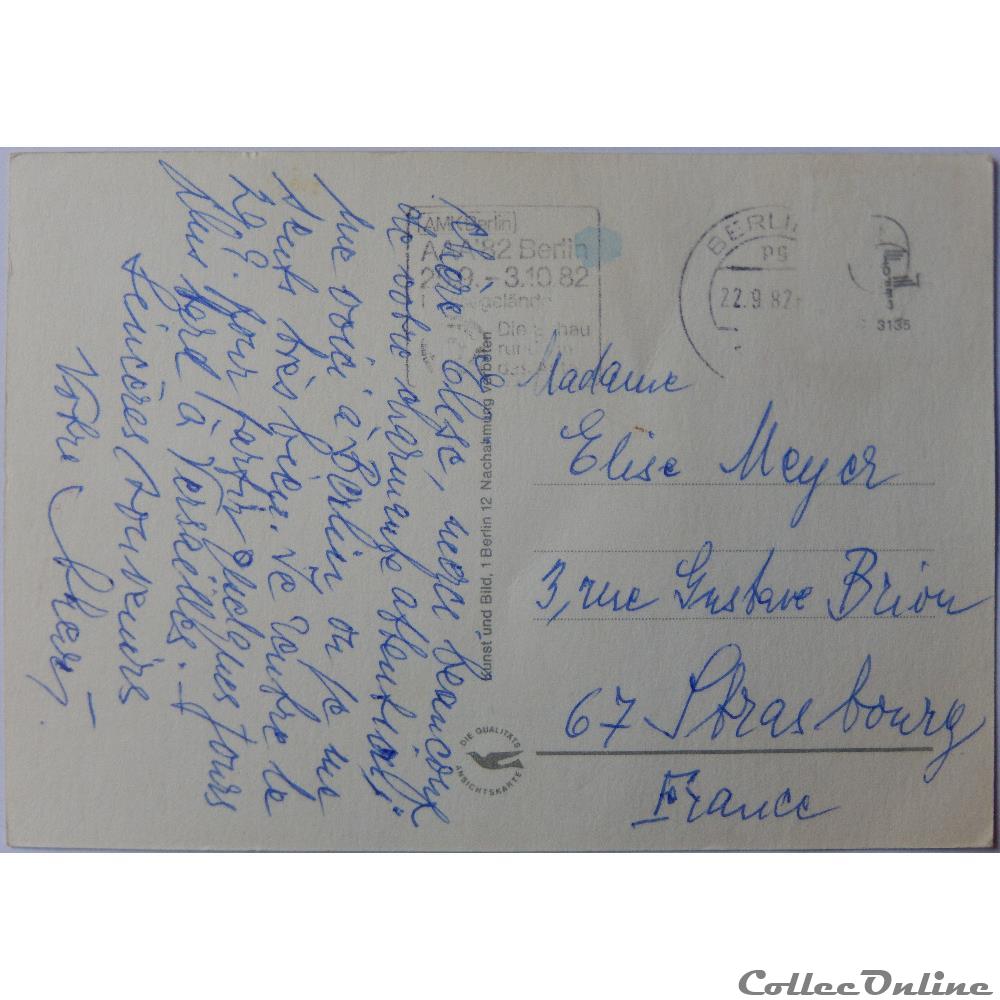 Chère Elise, merci beaucoup
de votre charmante attention!
Me voici à Berlin où je me
sens très bien. Je rentre le
29.9. pour partir quelques jours
plus tard à Versailles. -
Sincères souvenirs
Votre
[AMK Berlin]
AAA'82 Berlin
9.-3.10.82
Die
BERLIN
22.9.82
3135
Kunst und Bild, 1 Berlin 12 Nachahmung verboten
DIE QUALITÄTS
ANSICHTSKARTE
Madame
Elise Meyer
3, rue Gustave Brion
67 Strasbourg
France
CollecOnline